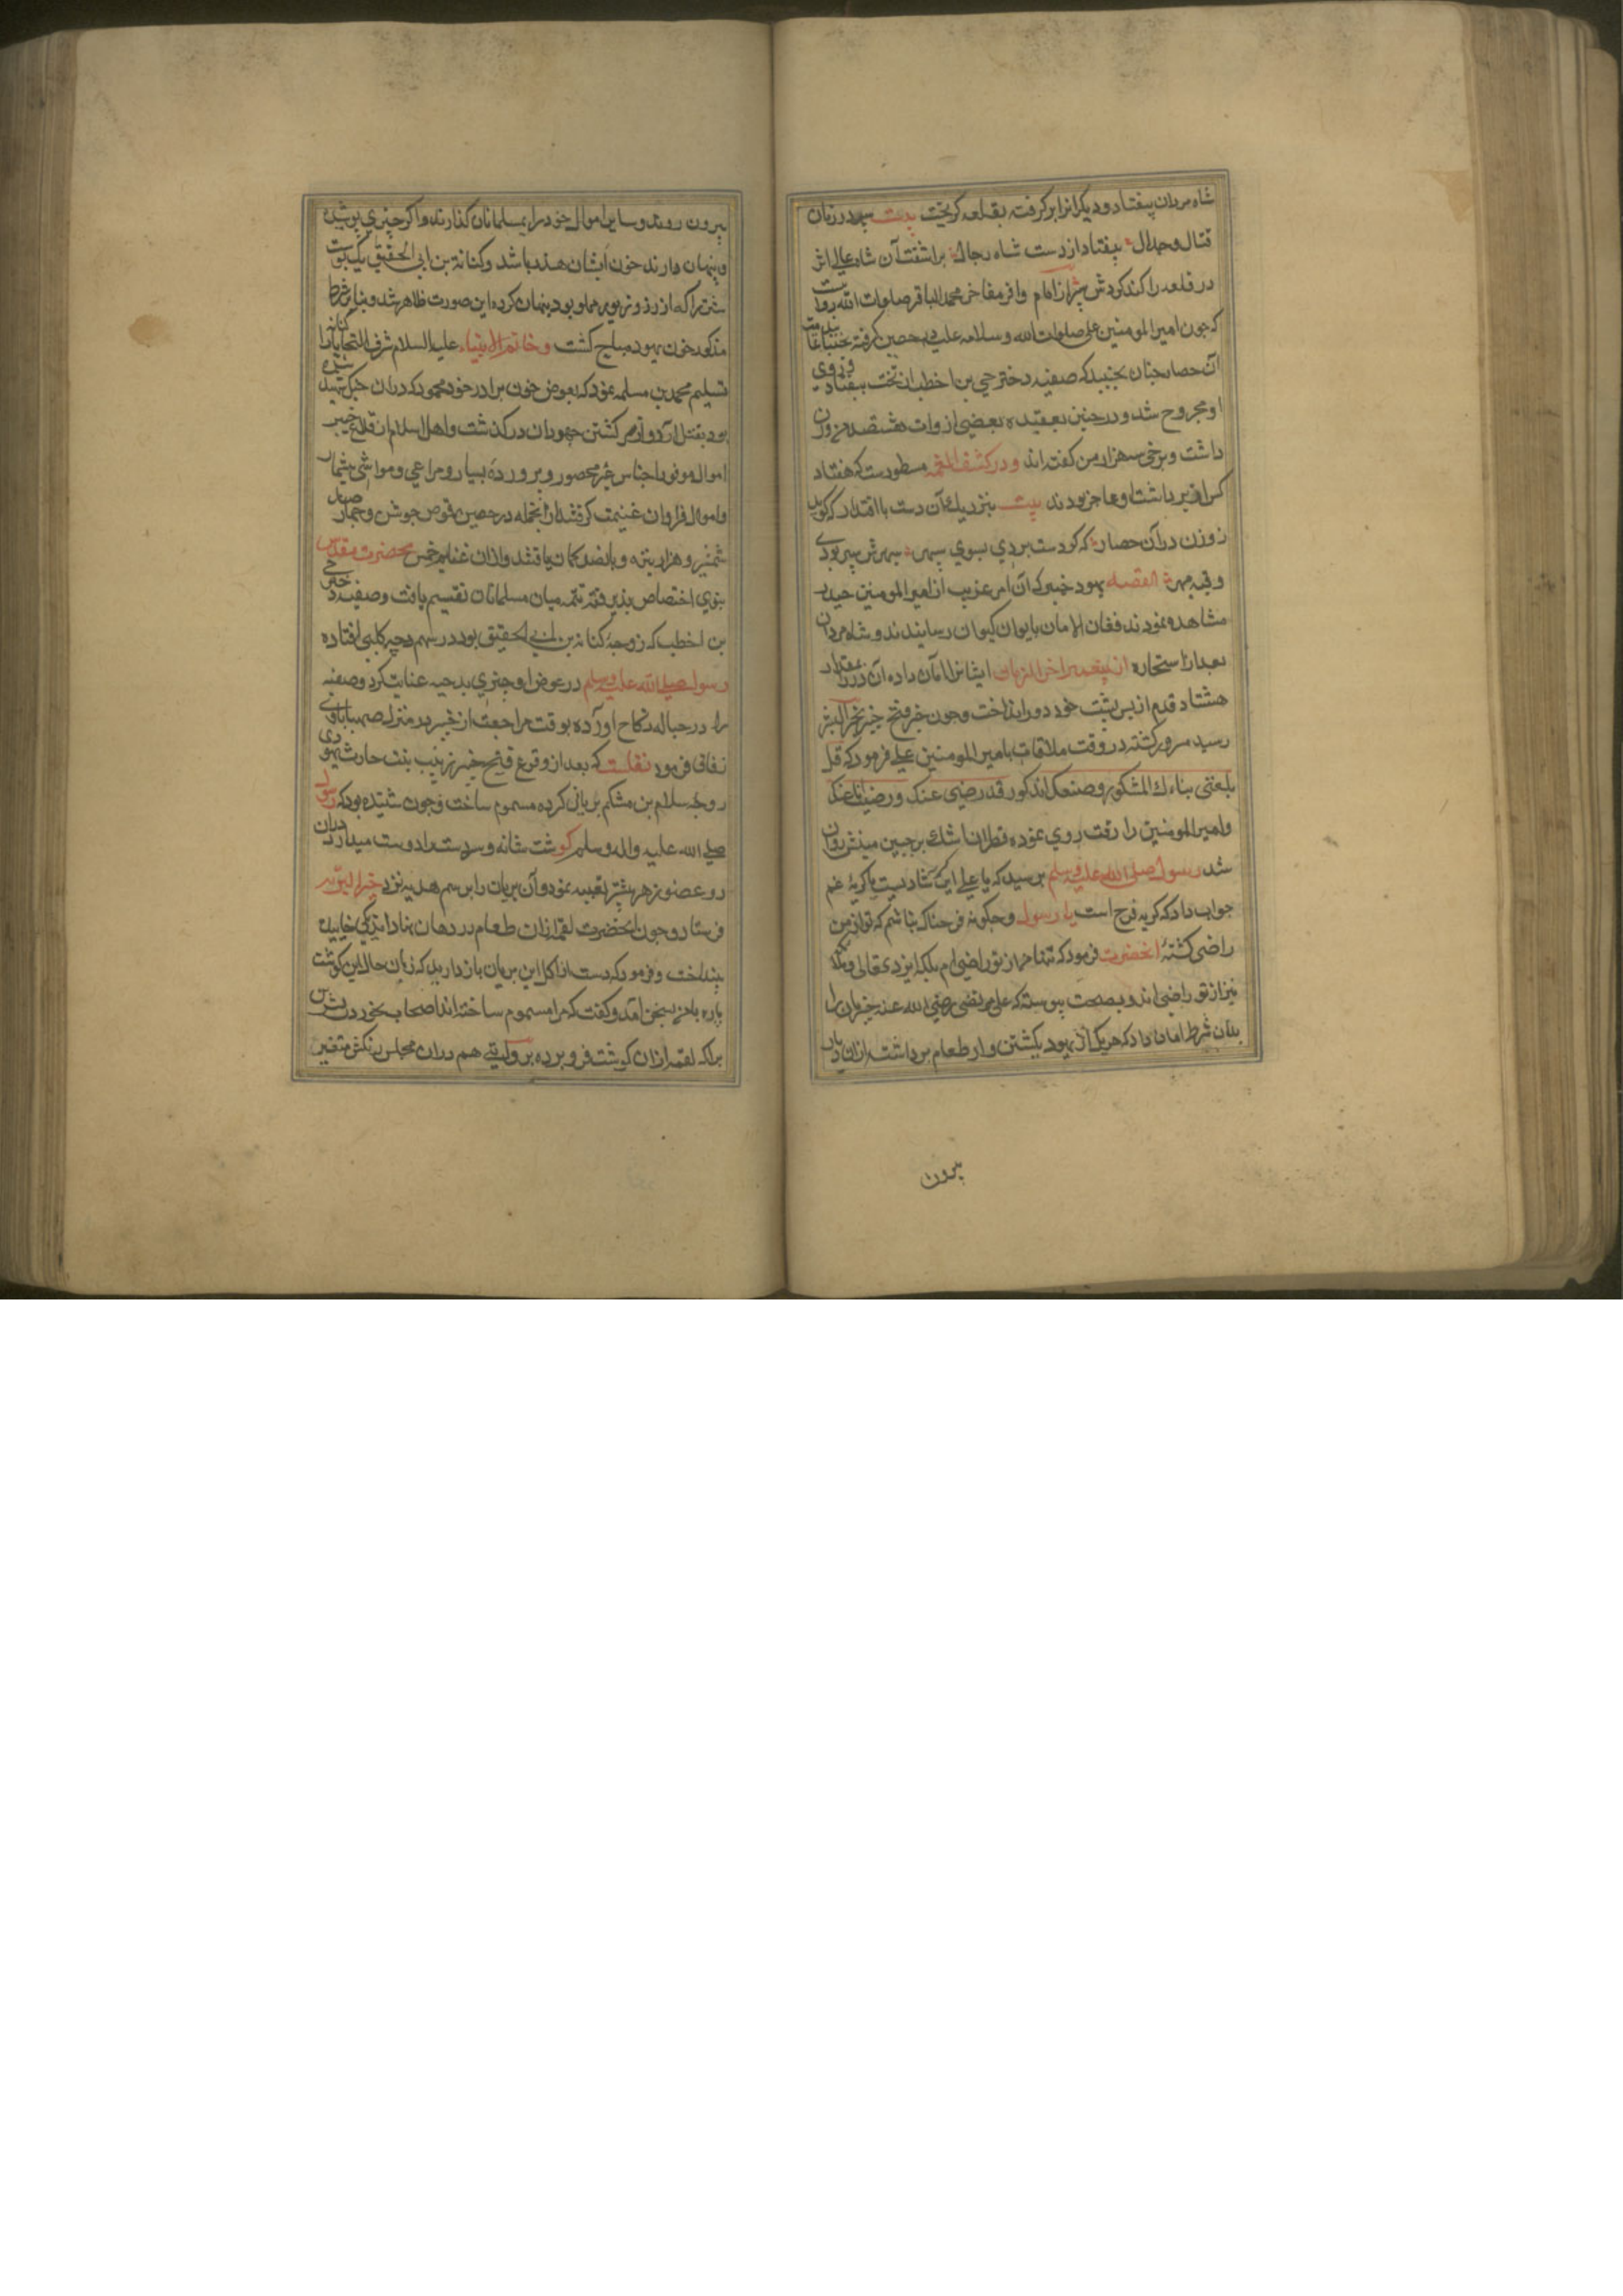 شاه مردان بیفتاد و دیگرانرا برگرفته بقلعه گریخت بیت سپر در زمان
قتال و جدال بیفتاد از دست شاه رجال برآشفت آن شاه عالی اثر
در قلعه را کند کردش سپر از امام وافر مفاخر محمد الباقر صلوات الله روایت
که چون امیر المومنین علی صلوات الله و سلامه علیه در حصن گرفته بجنبانید تمامت
آن حصار چنان بجنبید که صفیه دختر حیی بن اخطب از تخت بیفتاد و روی
او مجروح شد و در چنین بعقیده بعضی از روات هشتصد من وزن
داشت و برخی سه هزار من گفته اند و در کشف الغمه مسطورست که هفتاد
کس از برداشت او عاجز بودند بیت بنزدیک آن دست با اقتدار که گوید
زوزن در آن حصار که گر دست بردی بسوی سپهر سپهرش سپر بودی
و قبه مهر القصه یهود خیبر که آن امر غریب از امیر المومنین حیدر
مشاهده نمودند فغان الامان بایوان کیوان رسانیدند و شاه مردان
بعد از استجازه از پیغمبر اخر الزمان ایشانرا امان داده آن در را مقدار
هشتاد قدم از پس پشت خود دور انداخت و چون خبر فتح خیبر بخیر البشر
رسید مسرور گشته در وقت ملاقات با امیر المومنین علی فرمود که قد
بلغنی بناءک المشکور و صنعک المذکور قد رضی الله عنک و رضیت انا عنک
و امیر المومنین را رقت روی نموده قطرات اشک بر جبین مبینش روان
شد رسول صلی الله علیه وسلم پرسید که یا علی این گریه شادیست یا گریۀ غم
جواب داد که گریه فرح است یا رسول و چگونه فرحناک نباشم که تو از من
راضی گشتۀ انحضرت فرمود که تنها من از تو راضی ام بلکه ایزد تعالی و ملائکه
نیز از تو راضی اند و بصحت پیوسته که علی مرتضی رضی الله عنه خیبریان را
بدان شرط امان داد که هریک از یهود یکشتروار طعام برداشته از آن دیار
بیرون
بیرون روند و سایر اموال خود را بمسلمانان گذارند و اگر چیزی پوشیده
و پنهان دارند خون ایشان هدر باشد و کنانة بن ابی الحقیق یک پوست
شتر را که از زر و زیور مملو بود پنهان کرده این صورت ظاهر شد و بنابر شرط
مذکور خون یهود مباح گشت و خاتم الانبیاء علیه السلام شرف التحیات کنانه را
تسلیم محمد بن مسلمه نمود که بعوض خون برادر خود محمود که در آن جنگ شهید شده
بود بقتل آرد و از سر کشتن جهودان درگذشت و اهل اسلام از قلاع خیبر
اموال موفور اجناس غیر محصور و برورده بسیار و مراعی و مواشی بیشمار
و اموال فراوان غنیمت گرفتند از انجمله در حصن قموص جوشن و چهار صد
شمشیر و هزار نیزه و پانصد کمان یافتند و از آن غنایم خمس بحضرت مقدس
نبوی اختصاص پذیرفته تتمه میان مسلمانان تقسیم یافت و صفیه دختر حیی
بن اخطب که زوجۀ کنانه بن ابی الحقیق بود در سهم دحیه کلبی افتاده
رسول صلی الله علیه وسلم در عوض او چیزی بدحیه عنایت کرد و صفیه
را در حباله نکاح اورده بوقت مراجعت از خیبر در منزل صهبا باوی
زفاف فرمود نقلست که بعد از وقوع فتح خیبر زینب بنت حارث یهودی
زوجه سلام بن مشکم بریانی کرده مسموم ساخت و چون شنیده بود که رسول
صلی الله علیه واله وسلم گوشت شانه و سر دست را دوست میدارد در آن
دو عضو زهر بیشتر تعبیه نمود و آن بریان را برسم هدیه نزد خیر البریه
فرستاد و چون انحضرت لقمه از آن طعام در دهان نهاد اندکی خایید
بینداخت و فرمود که دست از اکل این بریان بازدارید که زبان حال این گوشت
پاره با من بسخن آمد و گفت که مرا مسموم ساخته اند اصحاب بخوردن بشر بن
براء که لقمه از آن گوشت فرو برده بروایتی هم در آن مجلس رنگش متغیر